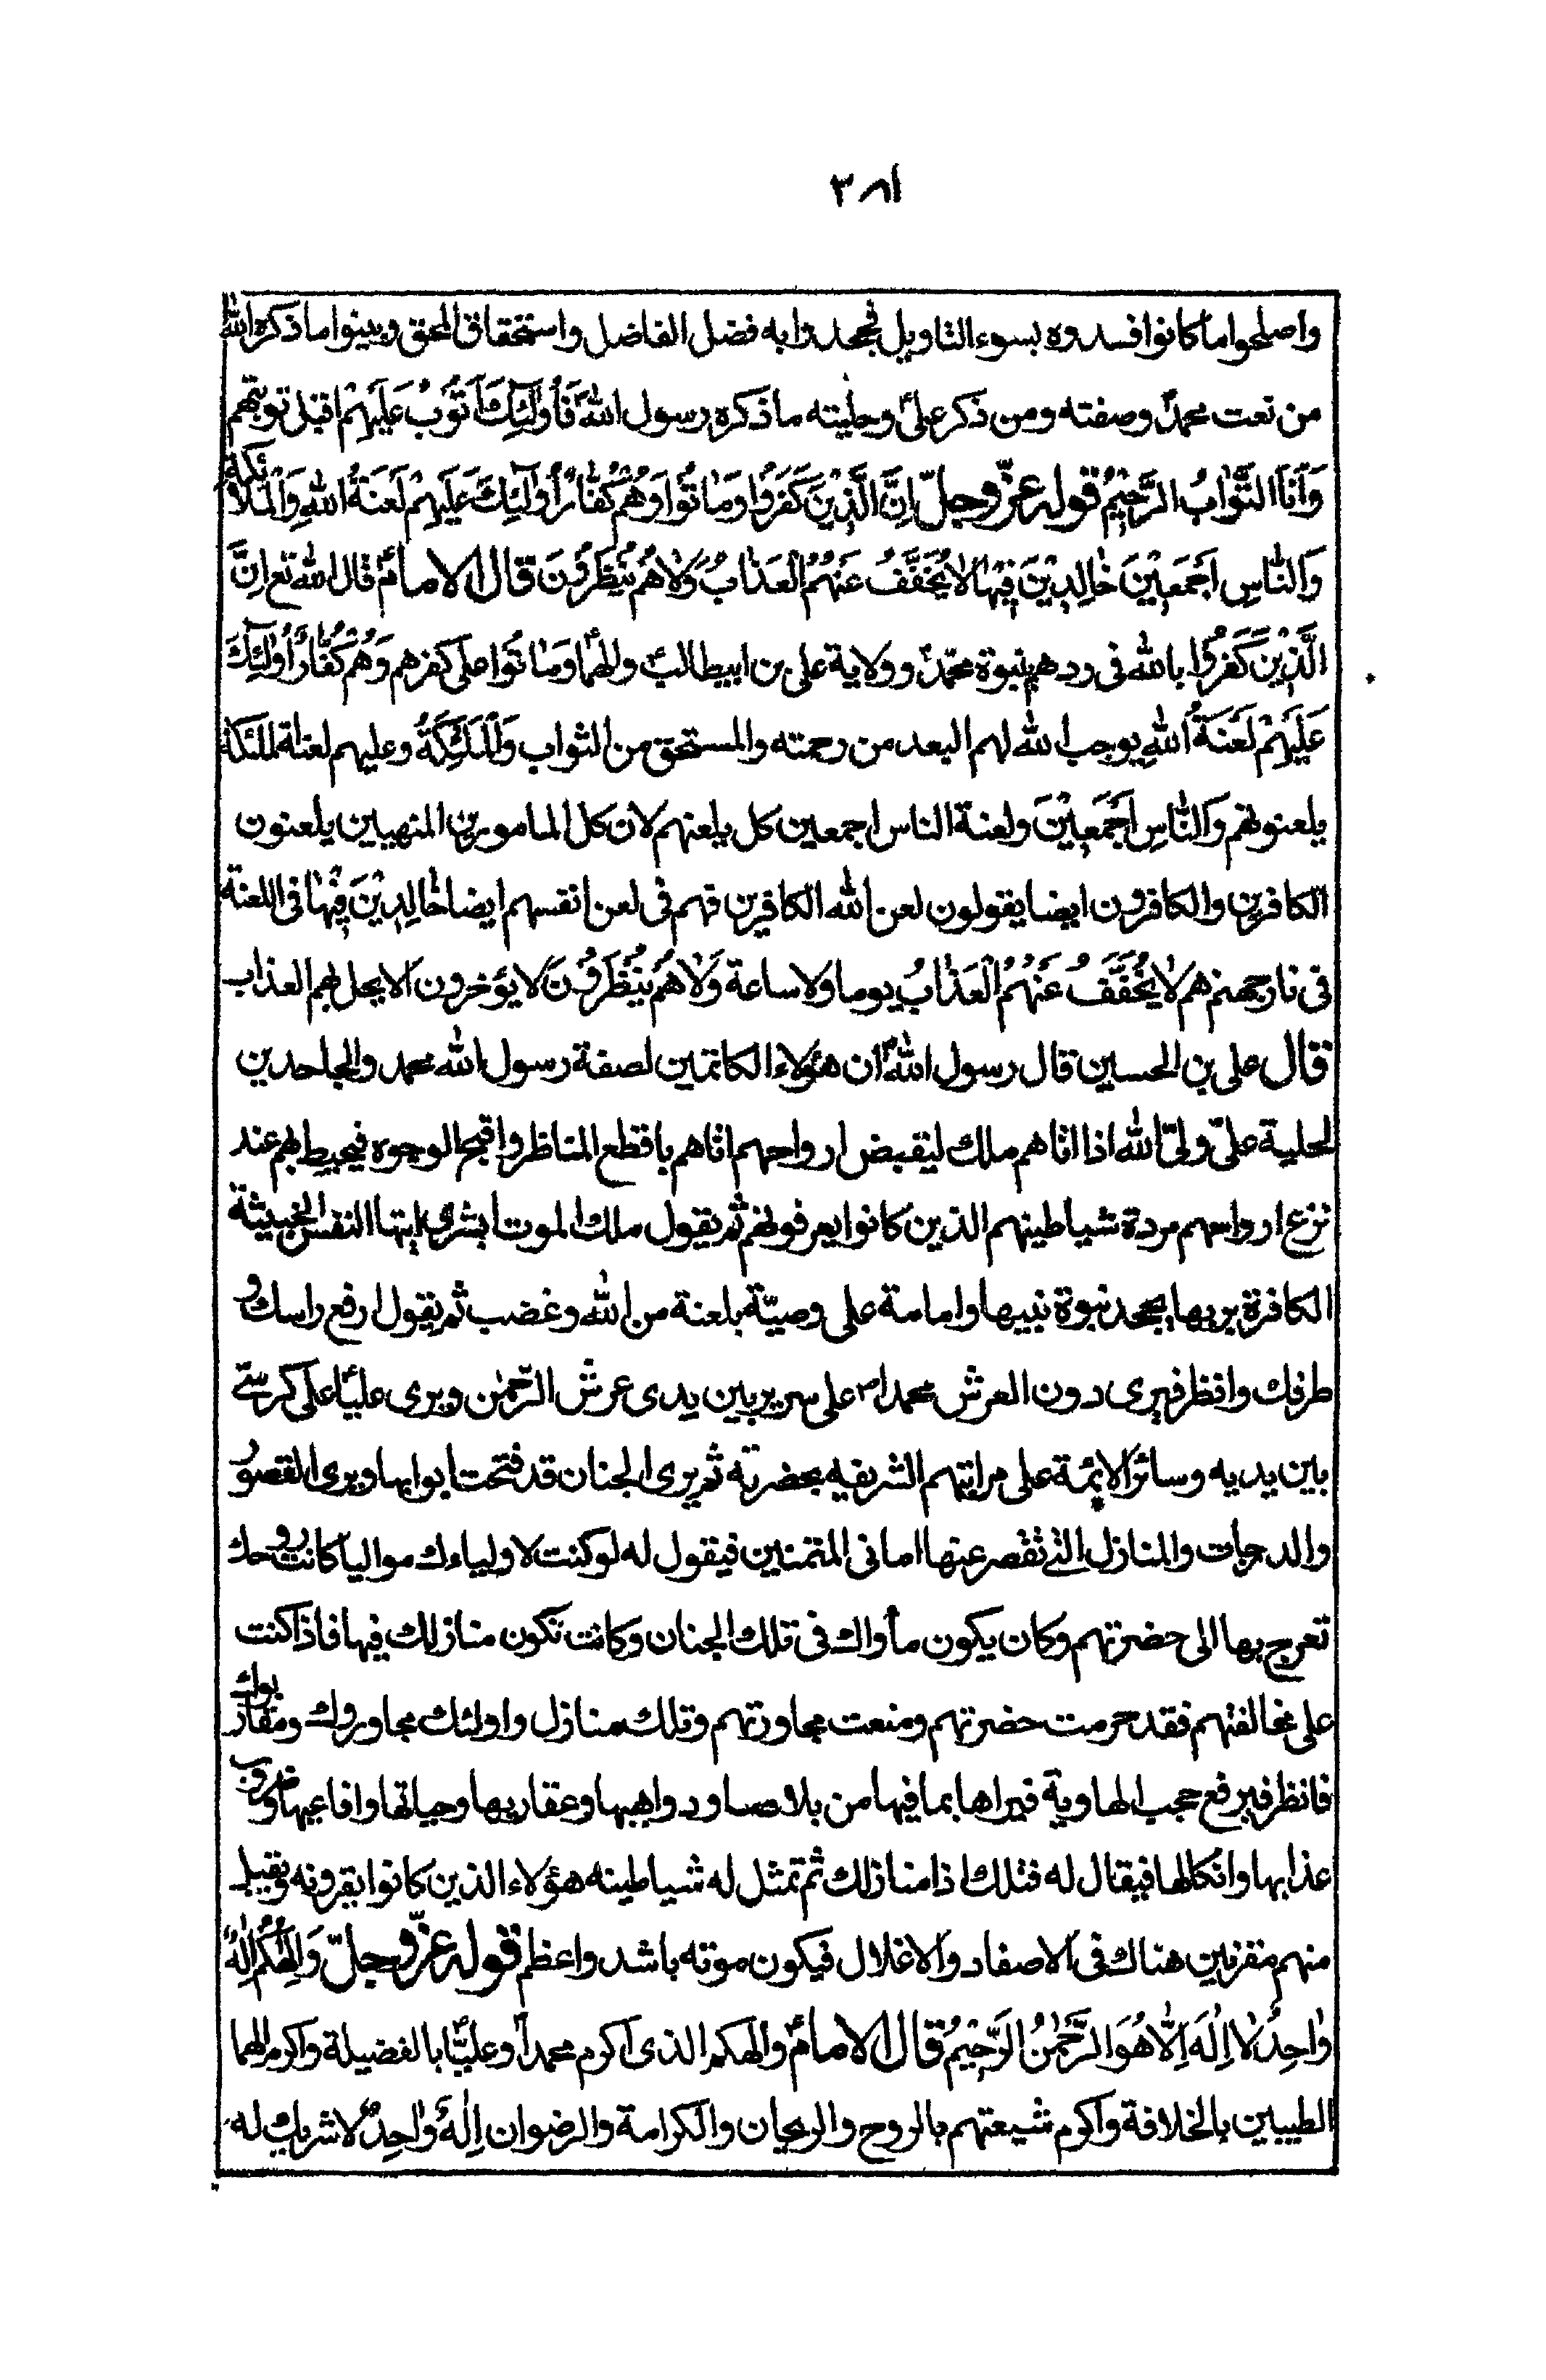 ٣٨١
واصلحوا ما كانوا افسدوه بسوء التاويل فجحدوا به فضل الفاضل واستحقاق المحق وبينوا ما ذكره الله
من نعت محمدؐ وصفته ومن ذكر عليؑ وحليته ما ذكره رسول اللهؐ فَأُولٰئِكَ أَتُوبُ عَلَيْهِمْ اقبل توبتهم
وَأَنَا التَّوَّابُ الرَّحِيمُ قوله عزّ وجلّ إِنَّ الَّذِينَ كَفَرُوا وَمَاتُوا وَهُمْ كُفَّارٌ أُولٰئِكَ عَلَيْهِمْ لَعْنَةُ اللهِ وَالْمَلَائِكَةِ
وَالنَّاسِ أَجْمَعِينَ خَالِدِينَ فِيهَا لَا يُخَفَّفُ عَنْهُمُ الْعَذَابُ وَلَا هُمْ يُنْظَرُونَ قال الامامؑ قال الله تع إِنَّ
الَّذِينَ كَفَرُوا بالله في ردهم نبوة محمدؐ وولاية علي بن ابيطالبؑ والهما وَمَاتُوا على كفرهم وَهُمْ كُفَّارٌ أُولٰئِكَ
عَلَيْهِمْ لَعْنَةُ اللهِ يوجب الله لهم البعد من رحمته والمستحق من الثواب وَالْمَلٰئِكَةُ وعليهم لعنة الملئكة
يلعنونهم وَالنَّاسِ أَجْمَعِينَ ولعنة الناس اجمعين كل يلعنهم لان كل المامورين المنهيين يلعنون
الكافرين والكافرون ايضا يقولون لعن الله الكافرين فهم في لعن انفسهم ايضا خَالِدِينَ فِيهَا في اللعنة
في نار جهنم هم لَا يُخَفَّفُ عَنْهُمُ الْعَذَابُ يوما ولا ساعة وَلَا هُمْ يُنْظَرُونَ لا يؤخرون الا يحل بهم العذاب
قال علي بن الحسين قال رسول اللهؐ ان هؤلاء الكاتمين لصفة رسول الله محمد والجاحدين
لحلية عليّ وليّ الله اذا اتاهم ملك ليقبض ارواحهم اتاهم بافظع المناظر واقبح الوجوه فيحيط بهم عند
نزع ارواحهم مردة شياطينهم الذين كانوا يعرفونهم ثم يقول ملك الموت ابشرى ايتها النفس الخبيثة
الكافرة بربها بجحد نبوة نبيها وامامة على وصيّه بلعنة من الله وغضب ثم يقول ارفع راسك و
طرفك وانظر فيرى دون العرش محمدا ص على سرير بين يدى عرش الرّحمٰن ويرى علياؑ على كرسيّ
بين يديه وسائر الائمة على مراتبهم الشريفه بحضرته ثم يرى الجنان قد فتحت ابوابها ويرى القصور
والدرجات والمنازل التي تقصر عنها امانى المتمنين فيقول له لو كنت لاولياءك مواليا كانت روحك
تعرج بها الى حضرتهم وكان يكون مأواك في تلك الجنان وكانت تكون منازلك فيها فاذا كنت
على مخالفتهم فقد حرمت حضرتهم ومنعت مجاورتهم وتلك منازل واولئك مجاوروك ومقاربوك
فانظر فيرفع حجب الهاوية فيراها بما فيها من بلاهاصا ودواهيها وعقاربها وحياتها وافاعيها وضروب
عذابها وانكالها فيقال له فتلك اذا منازلك ثم تمثل له شياطينه هؤلاء الذين كانوا يقرونه ويقبل
منهم مقرنين هناك في الاصفاد والاغلال فيكون موته باشد واعظم قوله عزّ وجلّ وَإِلٰهُكُمْ إِلٰهٌ
وَاحِدٌ لَا إِلٰهَ إِلَّا هُوَ الرَّحْمٰنُ الرَّحِيمُ قال الامامؑ والهكم الذى اكرم محمداؐ وعلياؑ بالفضيلة واكرم الهما
الطيبين بالخلافة واكرم شيعتهم بالروح والريحان والكرامة والرضوان إِلٰهٌ وَاحِدٌ لا شريك له